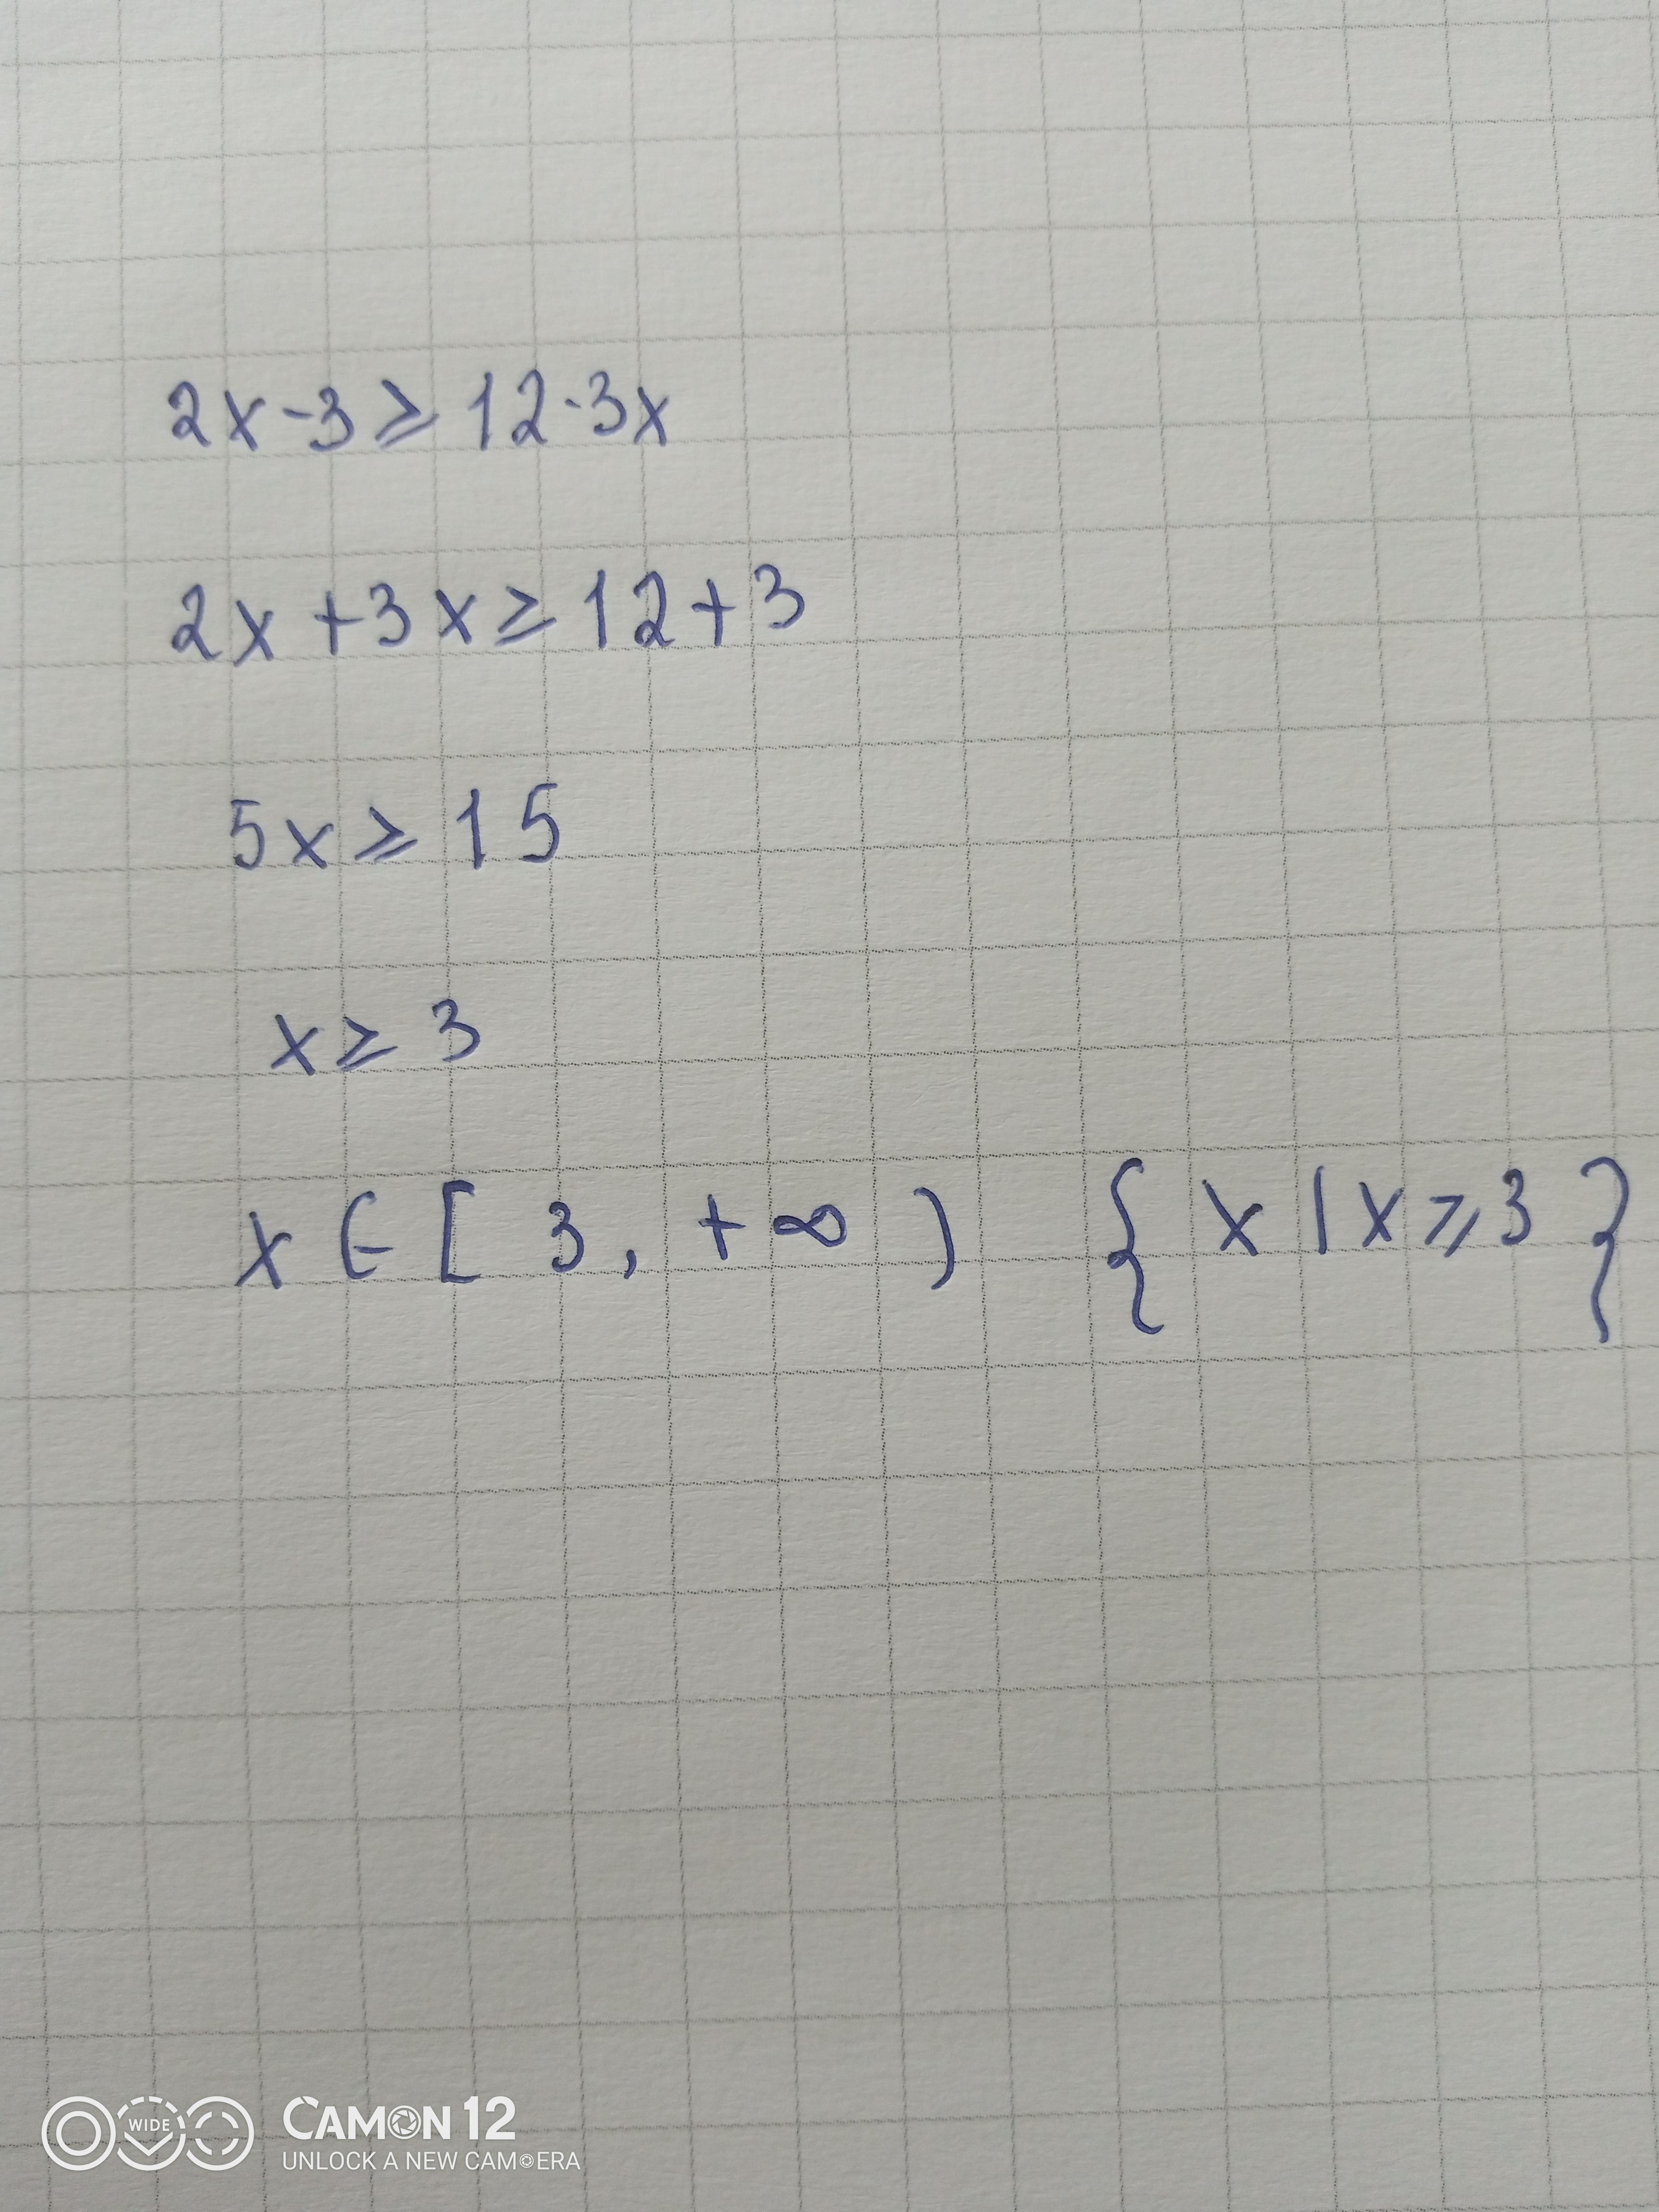 2x-3⩾12-3x
2x+3x≥12+3
5x⩾15
x≥3
x∈[3,+∞) {x|x⩾3}
WIDE
CAMON 12
UNLOCK A NEW CAMERA